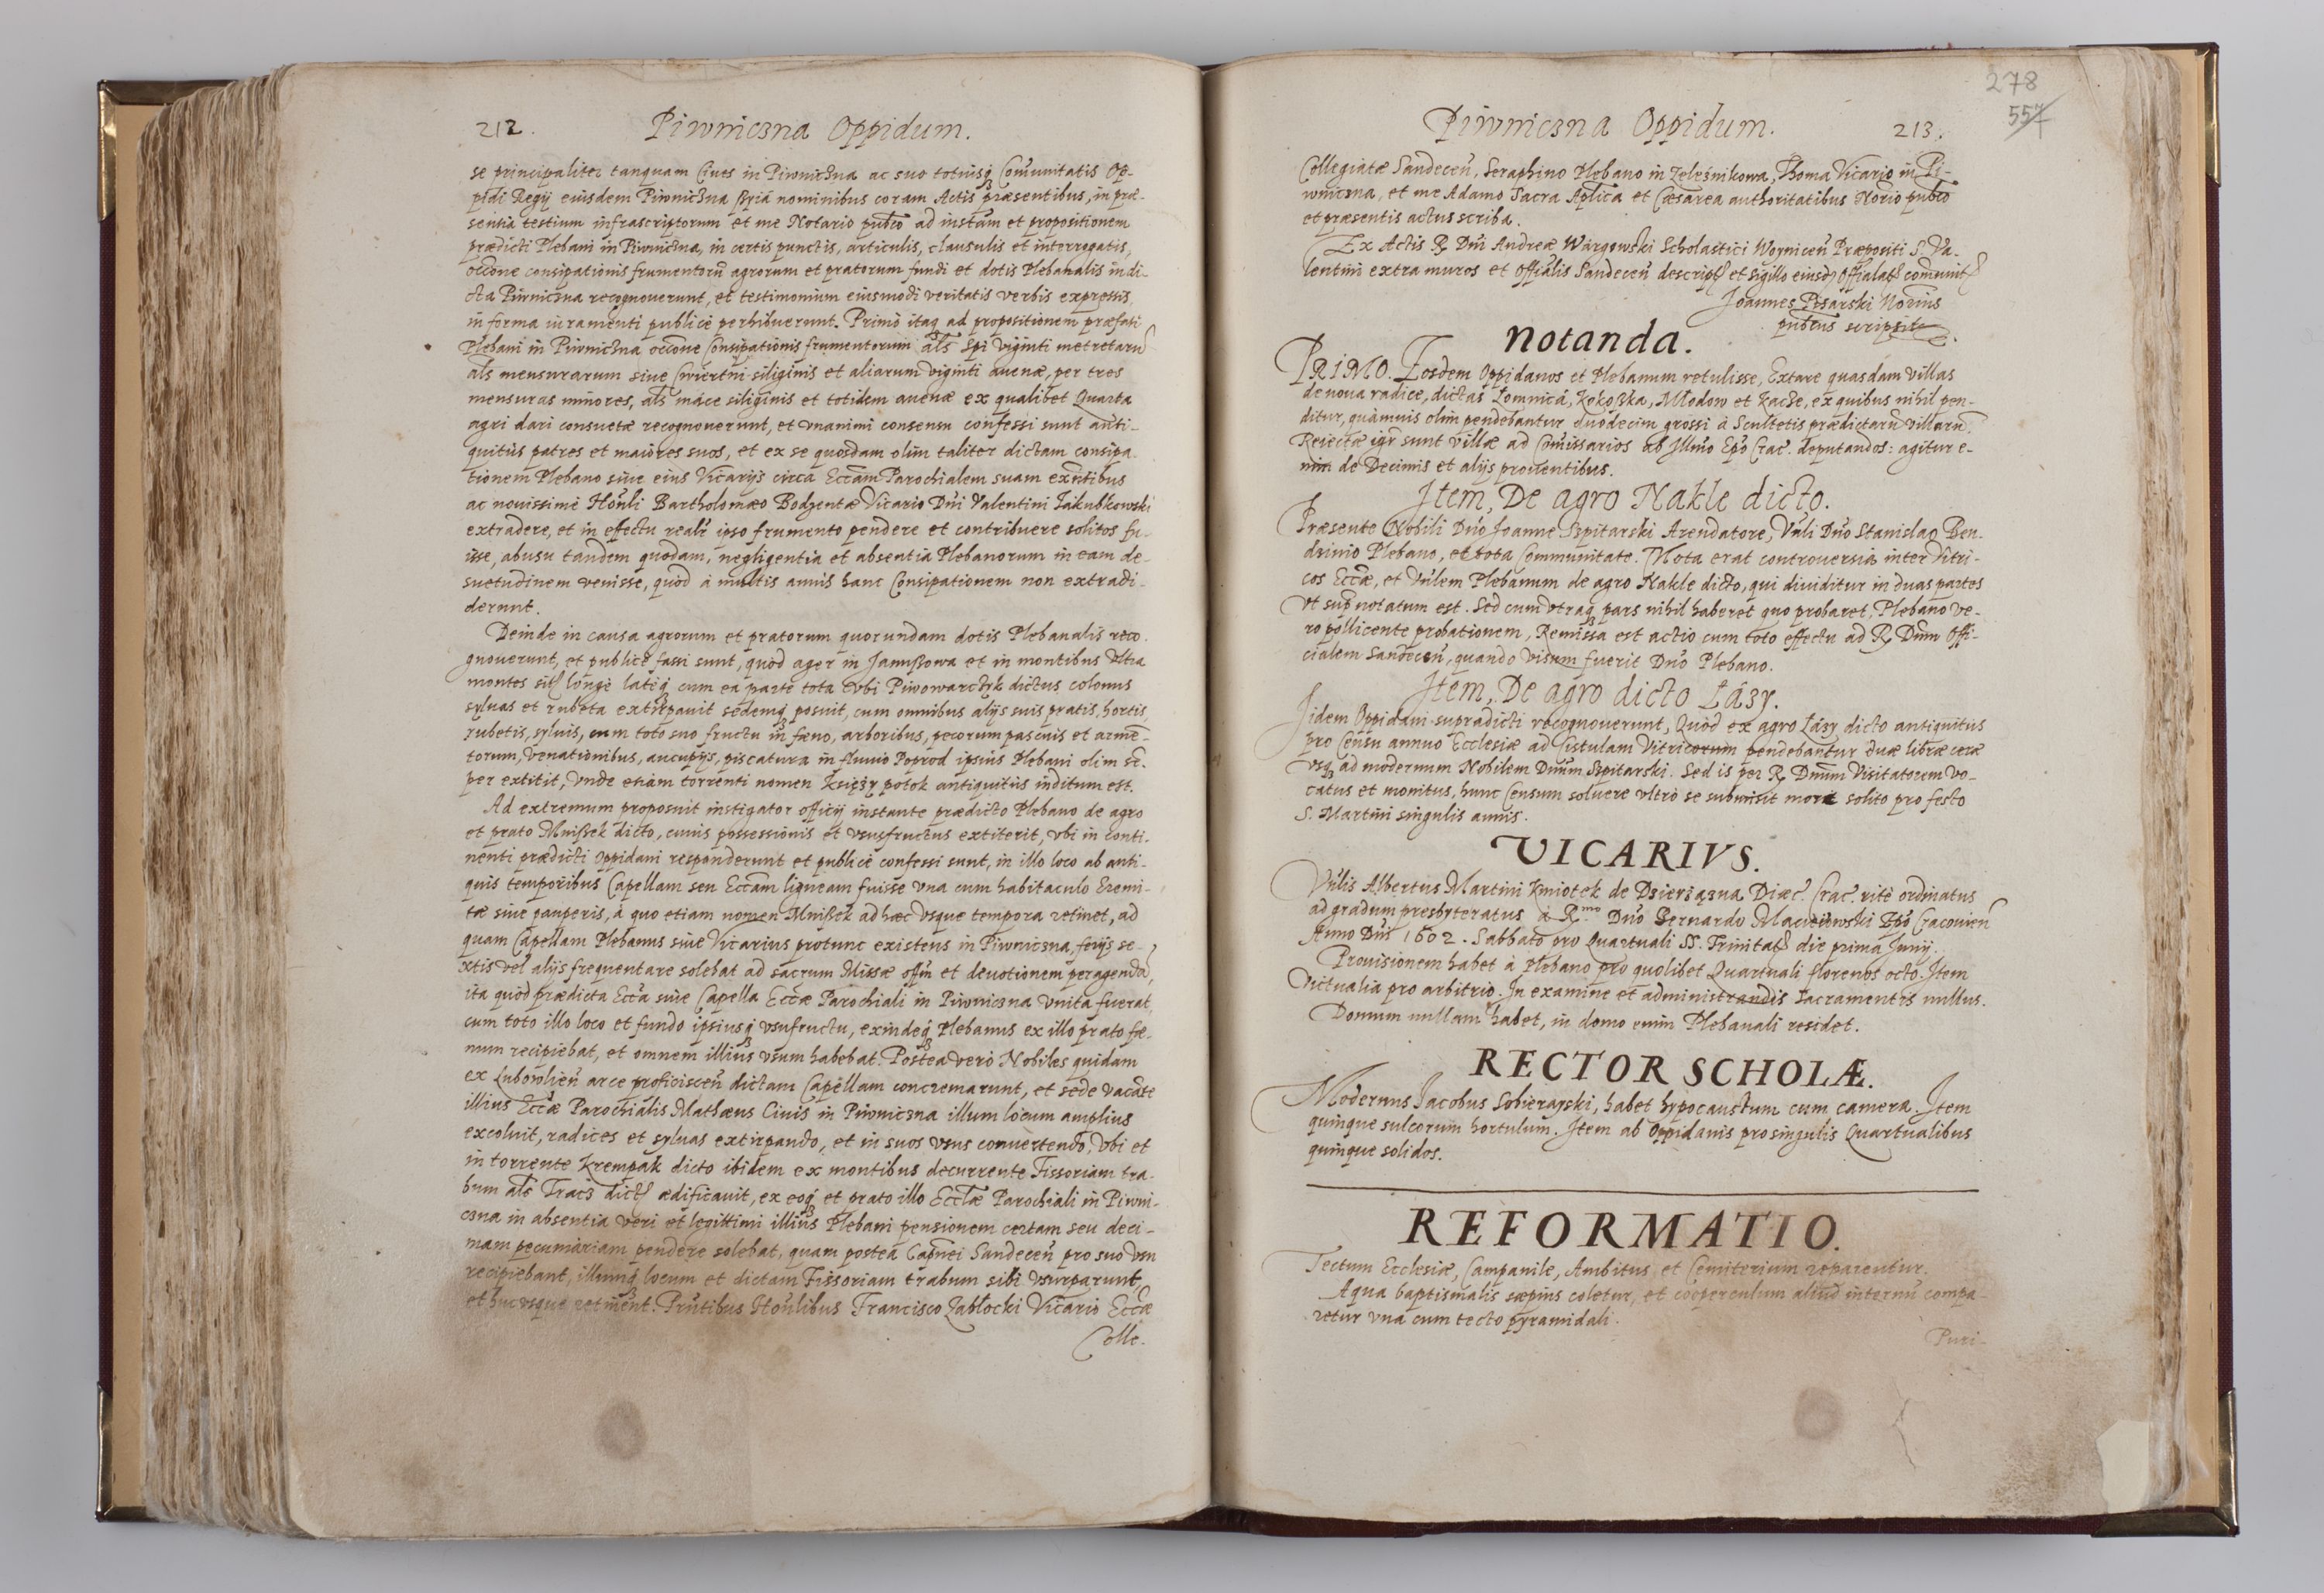 212.
Piwnicзna Oppidum.
se principaliter tanquam Ciues in Piwnicзna ac suo totiusq Com̄unitatis Op-
pidi Regij eiusdem Piwnicзna nominibus coram Actis præsentibus, in præ-
sentia testium infrascriptorum et me Notario pub̄co ad instām et propositionem
prædicti Plebani in Piwnicзna, in certis punctis, articulis, clausulis et interrogatis,
occōne consipationis frumentorū agrorum et pratorum fundi et dotis Plebanalis in di-
cta Piwnicзna recognouerunt, et testimonium eiusmodi veritatis verbis expressis,
in forma iuramenti publicè perhibuerunt. Primò itaq ad propositionem præfati
Plebani in Piwnicзna occōne Consipationis frumentorum al̄s Spi viginti metretarū
al̄s mensurarum siue Cwiertni siliginis et aliarum viginti auenæ, per tres
mensuras minores, al̄s miáce siliginis et totidem auenæ ex qualibet Quarta
agri dari consuetæ recognouerunt, et vnanimi consensu confessi sunt anti-
quitùs patres et maiores suos, et ex se quosdam olim taliter dictam consipa-
tionem Plebano siue eius Vicarijs circa Ecc̄am Parochialem suam exn̄tibus
ac nouissimè Hon̄li Bartholomæo Bodzentæ Vicario Dn̄i Valentini Jakubkowski
extradere, et in effectu reali ipso frumento pendere et contribuere solitos fu-
isse, abusu tandem quodam, negligentia et absentia Plebanorum in eam de-
suetudinem venisse, quòd à multis annis hanc Consipationem non extradi-
derunt.
Deinde in causa agrorum et pratorum quorundam dotis Plebanalis reco-
gnouerunt, et publicè fassi sunt, quòd ager in Janußowa et in montibus vltra
montes sit longè latèq cum ea parte tota vbi Piwowarczyk dictus colonus
syluas et rubeta extirpauit sedemq posuit, cum omnibus alijs suis pratis, hortis,
rubetis, syluis, cum toto suo fructu in fæno, arboribus, pecorum pascuis et armē-
torum, venationibus, aucupijs, piscatura in fluuio Poprod ipsius Plebani olim sē-
per extitit, vnde etiam torrenti nomen Księży potok antiquitùs inditum est.
Ad extremum proposuit instigator officij instante prædicto Plebano de agro
et prato Mnißek dicto, cuius possessionis et vsusfructus extiterit, vbi in conti-
nenti prædicti oppidani responderunt et publicè confessi sunt, in illo loco ab anti-
quis temporibus Capellam seu Ecc̄am ligneam fuisse vna cum habitaculo Eremi-
tæ siue pauperis, à quo etiam nomen Mnißek ad hæc vsque tempora retinet, ad
quam Capellam Plebanus siue Vicarius protunc existens in Piwnicзna, ferijs se-
xtis vel alijs frequentare solebat ad sacrum Missæ offm̄ et deuotionem peragendā,
ita quòd prædicta Ecc̄a siue Capella Ecc̄æ Parochiali in Piwnicзna vnita fuerat,
cum toto illo loco et fundo ipsiusq vsufructu, exindeq Plebanus ex illo prato fæ-
num recipiebat, et omnem illius vsum habebat. Postea verò Nobiles quidam
ex Lubowlień arce proficisceń dictam Capellam concremarunt, et sede vacāte
illius Ecc̄æ Parochialis Mathæus Ciuis in Piwnicзna illum locum amplius
excoluit, radices et syluas extirpando, et in suos vsus conuertendo, vbi et
in torrente Krempák dicto ibidem ex montibus decurrente Fissoriam tra-
bum al̄s Tracз dict ædificauit, ex eoq et prato illo Eccl̄æ Parochiali in Piwni-
cзna in absentia veri et legittimi illius Plebani pensionem certam seu deci-
mam pecuniariam pendere solebat, quam postea Capn̄ei Sandeceń pro suo vsu
recipiebant, illumq locum et dictam Fissoriam trabum sibi vsurparunt,
et hucvsque retinent. Prn̄tibus Hon̄libus Francisco Zabłocki Vicario Ecc̄æ
Colle-
278
557
Piwnicзna Oppidum.
213.
Collegiatæ Sandeceń, Seraphino Plebano in Zeleśnikowa, Thoma Vicario in Pi-
wnicзna, et me Adamo Sacra Aplīca et Cæsarea authoritatibus Norīo pub̄co
et præsentis actus scriba.
Ex Actis R Dn̄i Andreæ Wargowski Scholastici Woyniceń Præpositi S. Va-
lentini extra muros et offiālis Sandeceń descript et sigillo eiusd Offiālat comunit
Joannes Pisarski Norīus
pub̄cus scripsit.
Notanda.
PRIMO. Eosdem Oppidanos et Plebanum retulisse, Extare quasdam villas
de noua radice, dictas Łomnica, Kokoßka, Młodow et Kacze, ex quibus nihil pen-
ditur, quàmuis olim pendebantur duodecim grossi à Scultetis prædictarū villarū.
Reiectæ igr̄ sunt villæ ad Com̄issarios ab Jllm̄o Ep̄o Crac. deputandos: agitur e-
nim de Decimis et alijs prouentibus.
Jtem, De agro Nakle dicto.
Præsente Nobili Dn̄o Joanne Spitarski Arendatore, Vn̄li Dn̄o Stanislao Ben-
dsinio Plebano, et tota Communitate. Mota erat controuersia inter Vitri-
cos Ecc̄æ, et Vn̄lem Plebanum de agro Nakle dicto, qui diuiditur in duas partes
vt sup̄ notatum est. Sed cum vtraq pars nihil haberet quo probaret, Plebano ve-
rò pollicente probationem, Remissa est actio cum toto effectu ad R Dnm̄ Offi-
cialem Sandeceń, quando visum fuerit Dn̄o Plebano.
Jtem, De agro dicto Łázy.
Jidem Oppidani supradicti recognouerunt, Quòd ex agro Łázy dicto antiquitùs
pro Censu annuo Ecclesiæ ad Cistulam Vitricorum pendebantur duæ libræ ceræ
vsq ad modernum Nobilem Dnūm Spitarski. Sed is per R Dnūm Visitatorem vo-
catus et monitus, hunc Censum soluere vltrò se submisit more solito pro festo
S. Martini singulis annis.
VICARIVS.
Vn̄lis Albertus Martini Kmiotek de Dзierзązna Diæc. Crac. ritè ordinatus
ad gradum presbyteratus à R.mo Dn̄o Bernardo Macieiowski Ep̄o Cracouień
Anno Dn̄i 1602. Sabbato pro Quartuali SS. Trinitat die prima Junij.
Prouisionem habet à Plebano pro quolibet Quartuali florenos octo. Jtem
Victualia pro arbitrio. Jn examine et administrandis Sacramentis nullus.
Domum nullam habet, in domo enim Plebanali residet.
RECTOR SCHOLÆ.
Modernus Jacobus Sobierayski, habet hypocaustum cum camera. Jtem
quinque sulcorum hortulum. Jtem ab Oppidanis pro singulis Quartualibus
quinque solidos.
REFORMATIO.
Tectum Ecclesiæ, Campanile, Ambitus, et Cemiterium reparentur.
Aqua baptismalis sæpius coletur, et cooperculum aliud internū compa-
retur vna cum tecto pyramidali.
Puri-